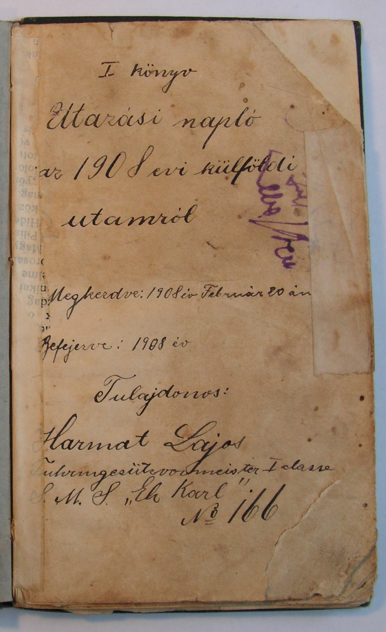 I. könyv
Utazási napló
az 1908 evi külföldi
utamról
Megkezdve: 1908 év Február 20 án
Befejezve: 1908 év
Tulajdonos:
Harmat Lajos
I classe
S. M. S. „Eh Karl"
No 166